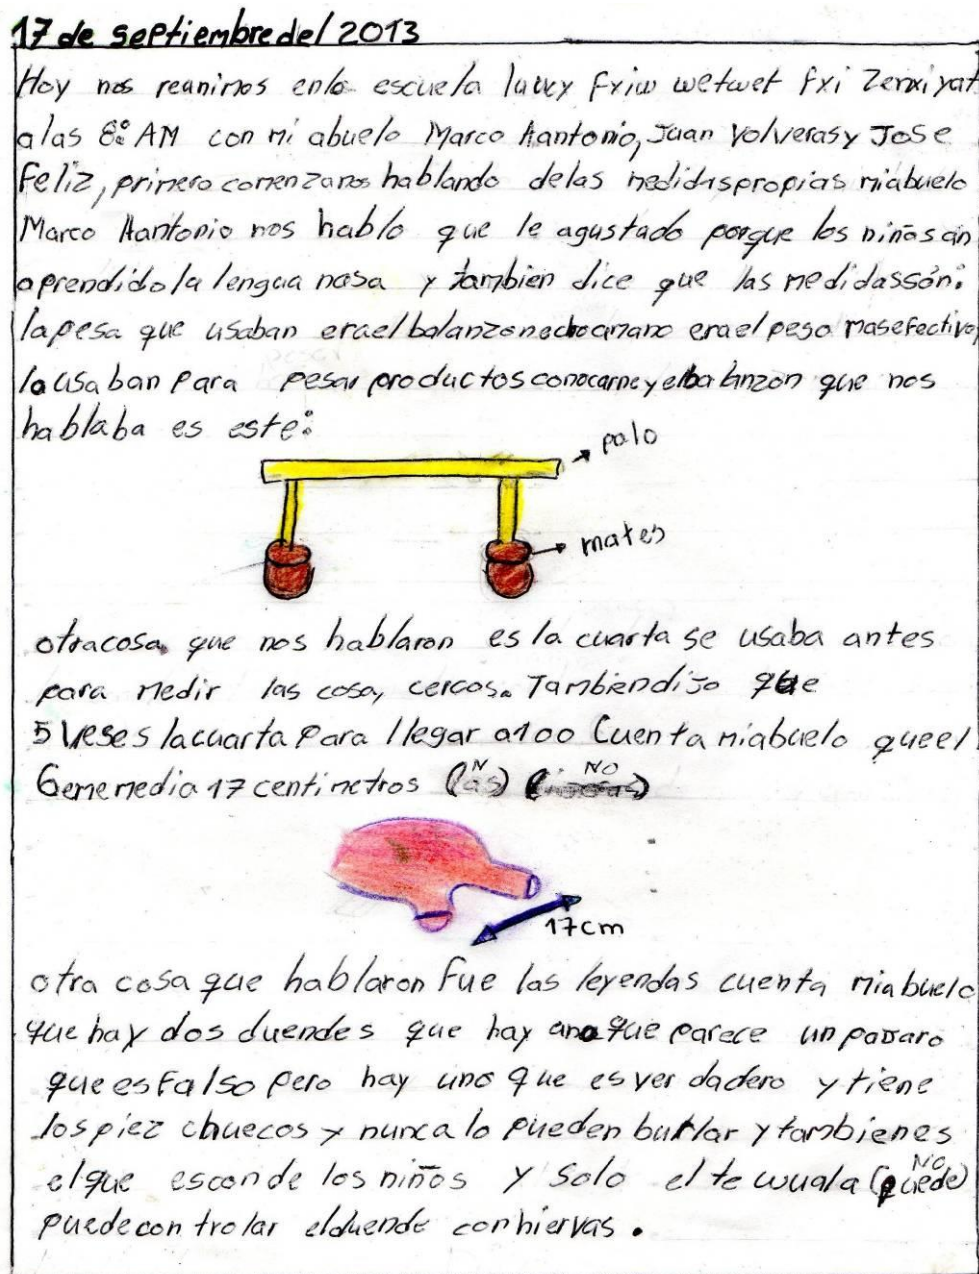 17 de septiembre del 2013
Hoy nos reunimos en la escuela
a las 8:° AM con mi abuelo Marco Aantonio, Juan Volveras y Jose
Feliz, primero comenzamos hablando de las medidas propias mi abuelo
Marco Aantonio nos hablo que le agustado porque los niños an
aprendido la lengua nasa y tambien dice que las medidas són:
la pesa que usaban era el balanzon echo amano era el peso mas efectivo,
lo usaban para pesar productos como carne y el balanzon que nos
hablaba es este:
palo
mates
otra cosa que nos hablaron es la cuarta se usaba antes
para medir las cosa, cercos. Tambien dijo que
5 veses la cuarta para llegar a 100 Cuenta mi abuelo que el
Geme media 17 centimetros (las) NO
17cm
otra cosa que hablaron fue las leyendas cuenta mi abuelo
que hay dos duendes que hay uno que parece un pajaro
que es falso pero hay uno que es verdadero y tiene
los piez chuecos y nunca lo pueden burlar y tambien es
el que esconde los niños y solo el te wuala (puede) NO
puede controlar el duende con hiervas.